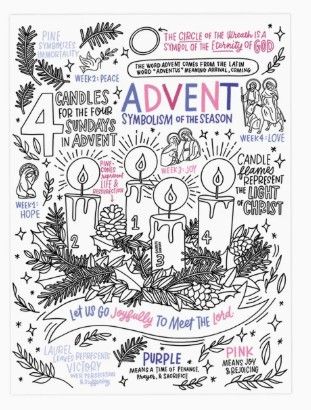 PINE
SYMBOLIZES
IMMORTALITY
THE CIRCLE OF THE Wreath IS A
SYMBOL OF THE Eternity OF GOD
THE WORD ADVENT COMES FROM THE LATIN
WORD "ADVENTUS" MEANING ARRIVAL, COMING
WEEK 2: PEACE
4 CANDLES
FOR THE FOUR
SUNDAYS
IN ADVENT
ADVENT
SYMBOLISM OF THE SEASON
WEEK 4: LOVE
WEEK 3: JOY
PINE-
CONES
REPRESENT
LIFE &
RESURRECTION
CANDLE
flames
REPRESENT
THE LIGHT
OF CHRIST
WEEK 1:
HOPE
2
1
3
4
Let US GO Joyfully TO MEET THE Lord
LAUREL
LEAVES REPRESENTS
VICTORY
OVER PERSECUTION
& Suffering
PURPLE
MEANS A TIME OF PENANCE,
Prayer, & SACRIFICE
PINK
MEANS JOY
& REJOICING